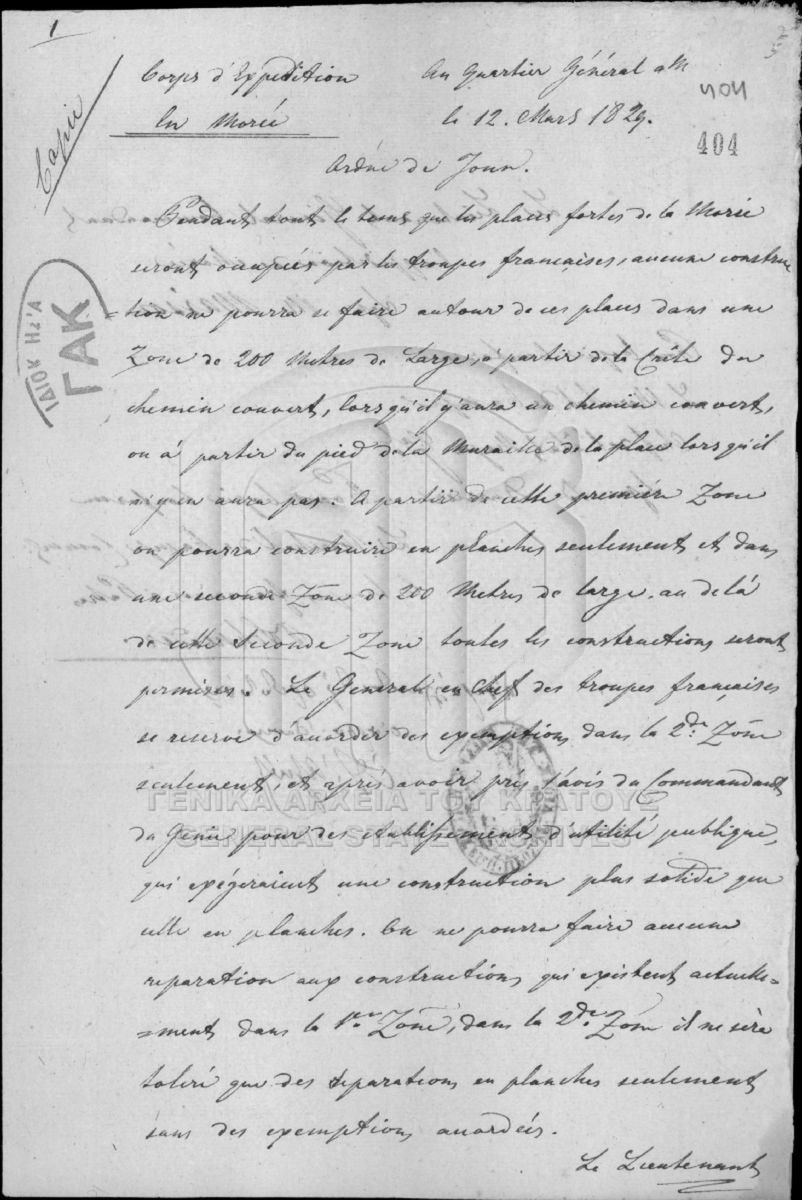 1
Copie
Corps d'Expedition
En Morée
Au Quartier Général
le 12. Mars 1829.
404
404
Ordre de Jour.
Pendant tout le tems que les places fortes de la Morée
seront occupées par les troupes françaises, aucune construc
=tion ne pourra se faire autour de ces places dans une
Zone de 200 Metres de Large, à partir de la Crête du
chemin couvert, lorsqu'il y aura un chemin couvert,
ou à partir du pied de la Muraille de la place lorsqu'il
n'y en aura pas. A partir de cette première Zone
on pourra construire en planches seulement et dans
une seconde Zone de 200 Metres de large. au delà
de cette Seconde Zone toutes les constructions seront
permises. Le General en Chef des troupes françaises
se reserve d'accorder des exemptions dans la 2de. Zone
seulement, et après avoir pris l'avis du Commandant
du Genie pour des établissements d'utilité publique,
qui exégeraient une construction plus solide que
celle en planches. On ne pourra faire aucune
reparation aux constructions qui existent actuelle=
=ment dans la 1re. Zone, dans la 2de. Zone il ne sera
toléré que des reparations en planches seulement
sans des exemptions accordées.
Le Lieutenant
ΙΔΙΟΚ Η7.'Α
ΓΑΚ
ΓΕΝΙΚΑ ΑΡΧΕΙΑ ΤΟΥ ΚΡΑΤΟΥΣ
GENERAL STATE ARCHIVES